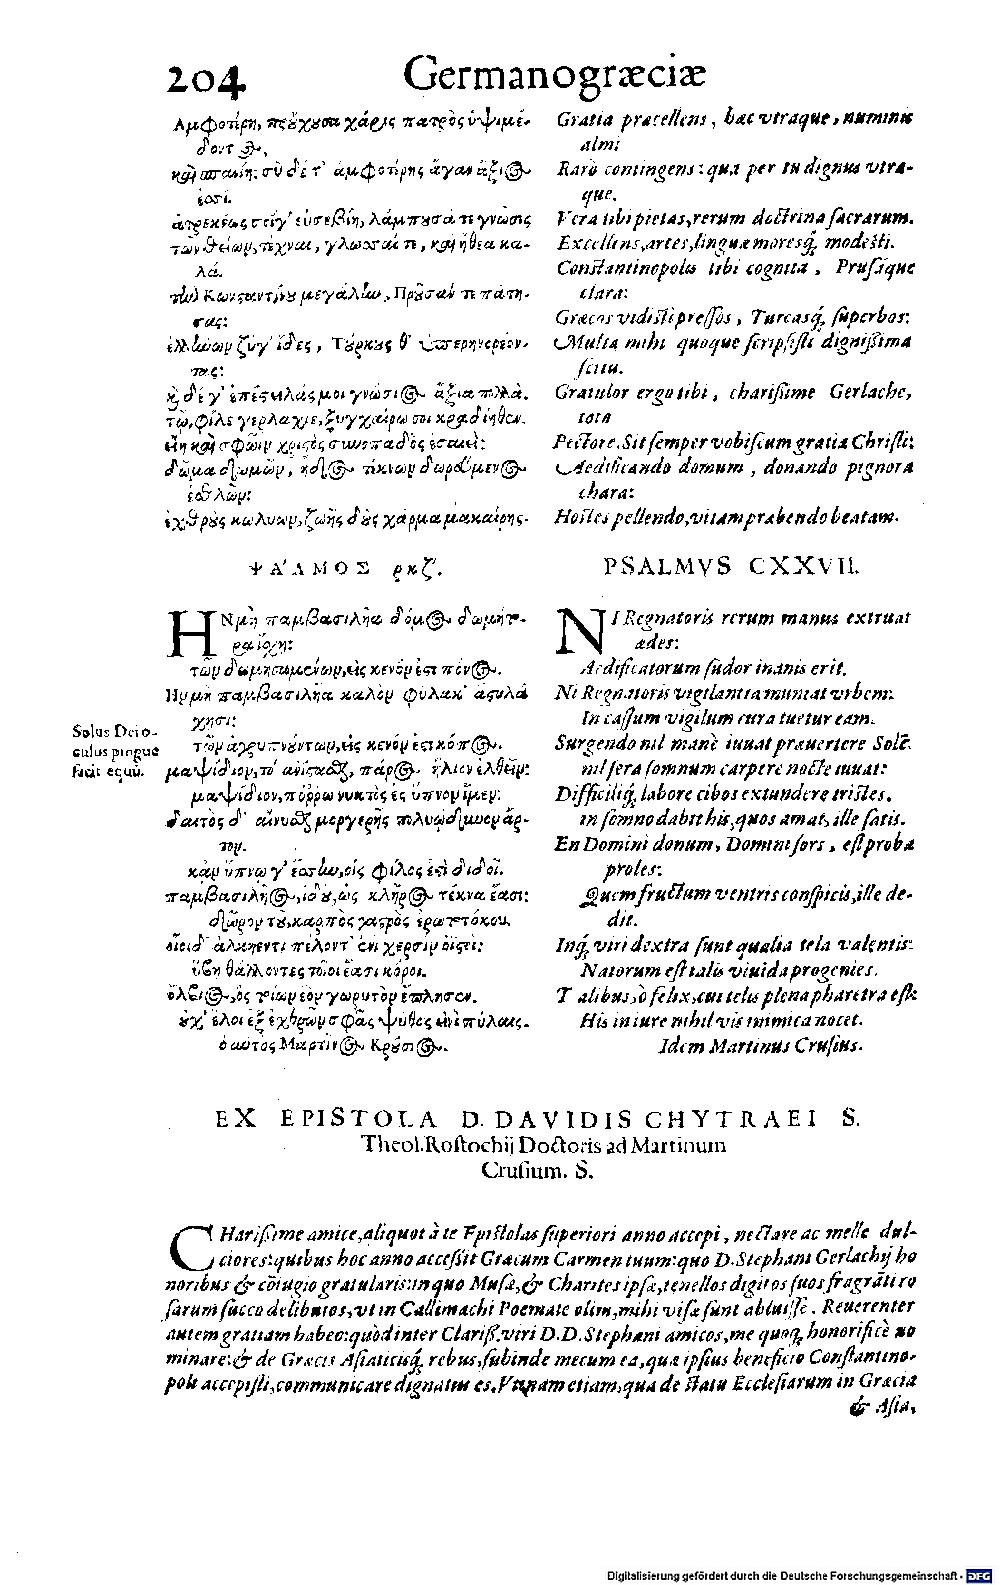 204 Germanogræciæ
Αμφοτέρη, πεύχουσα χάρις πατρὸς ὑψιμέ-
δοντος,
ἀτρεκέως σείγ' εὐσεβίη, λάμπουσά τε γνῶσις
τῶν θείων, τέχναι, γλῶσσαί τε, καὶ ἤθεα κα-
λά.
τὴν Κωνσταντίνου μεγάλην, Προῦσάν τε πατή-
σας:
ἑλλήνων ζύγ' ἶδες, Τούρκους θ' ὑπερηνορέον-
τας:
τῶ, φίλε γερλάχιε, ξυγχαίρω σοι κραδίηθεν.
εἴη καὶ σφῶϊν χριστὸς συνοπαδὸς ἐσαιεί:
ἐσθλῶν:
ἐχθροὺς κωλυων, ζωῆς δοὺς χάρμα μακαίρης.
Gratia præcellens, hæc vtraque, numinis
almi
Rarò contingens: qua per tu dignus vtra-
que.
Vera tibi pietas, rerum doctrina sacrarum.
Excellens, artes, linguæ moresq; modesti.
Constantinopolis tibi cognita, Prusáque
clara:
Græcos vidisti pressos, Turcasq; superbos:
Multa mihi quoque scripsisti dignissima
scitu.
Gratulor ergo tibi, charissime Gerlache,
toto
Pectore. Sit semper vobiscum gratia Christi:
Aedificando domum, donando pignora
chara:
Hostes pellendo, vitam præbendo beatam.
ΨΑΛΜΟΣ ρκζ'.
ΗΝ μὴ παμβασιλῆα δόμος δωμήτο-
ρα ἴσχῃ:
τῶν δωμησαμένων, εἰς κενόν ἐστι πόνος.
Ην μὴ παμβασιλῆα καλὸν φύλακ' ἄστυ λά
χῃσι:
τῶν ἀγρυπνούντων, εἰς κενόν ἐστι κόπος.
μαψίδιον, τό' ἀνίστασθ, πάρος ἥλιον ἐλθεῖν:
μαψίδιον, πόρρω νυκτὸς ἐς ὕπνον ἴμεν:
τον.
κἀν ὕπνῳ γ' ἐστίν, οἷς φίλος ἐστὶ διδοῖ.
παμβασιλῆος, ἰδού, ὡς κλῆρος τέκνα ἔασι:
δῶρον τοῦ, καρπὸς γαστρὸς ἐρωτοτόκου.
οἷοι δ' ἀλκήεντι πέλοντ' ἐνὶ χερσὶν ὀϊστοί:
ἥβῃ θάλλοντες τοῖοι ἔασι κόροι.
ὄλβιος, ὃς τοίων ἑὸν γωρυτὸν ἔπλησεν.
οὐχ' ἕλοι ἐξ ἐχθρῶν σφᾶς ψόθος ἐνὶ πύλαις.
ὁ αὐτὸς Μαρτῖνος Κρούσιος.
PSALMVS CXXVII.
NI Regnatoris rerum manus extruat
ædes:
Aedificatorum sudor inanis erit.
Ni Regnatoris vigilantia muniat vrbem:
In cassum vigilum cura tuetur eam.
Surgendo nil manè iuuat præuertere Solē.
nil sera somnum carpere nocte iuuat:
Difficiliq; labore cibos extundere tristes.
in somno dabit his, quos amat, ille satis.
En Domini donum, Domini sors, est proba
proles:
Quem fructum ventris conspicis, ille de-
dit.
Inq; viri dextra sunt qualia tela valentis:
Natorum est talis viuida progenies.
Talibus, ô felix, cui telis plena pharetra est:
His in iure nihil vis inimica nocet.
Idem Martinus Crusius.
Solus Dei o-
culus pingue
facit equū.
EX EPISTOLA D. DAVIDIS CHYTRAEI S.
Theol. Rostochij Doctoris ad Martinum
Crusium. S.
CHarissime amice, aliquot à te Epistolas superiori anno accepi, nectare ac melle dul-
ciores: quibus hoc anno accessit Græcum Carmen tuum: quo D. Stephani Gerlachij ho
noribus & cōiugio gratularis: in quo Musæ, & Charites ipsæ, tenellos digitos suos fragrāti ro
sarum succo delibutos, vt in Callimachi Poemate olim, mihi visæ sunt abluisse. Reuerenter
autem gratiam habeo: quòd inter Clariss. viri D. D. Stephani amicos, me quoq; honorificè no
minare: & de Græcis Asiaticisq; rebus, subinde mecum ea, quæ ipsius beneficio Constantino-
poli accepisti, communicare dignatus es. Vtinam etiam, qua de statu Ecclesiarum in Græcia
& Asia,
Digitalisierung gefördert durch die Deutsche Forschungsgemeinschaft - DFG